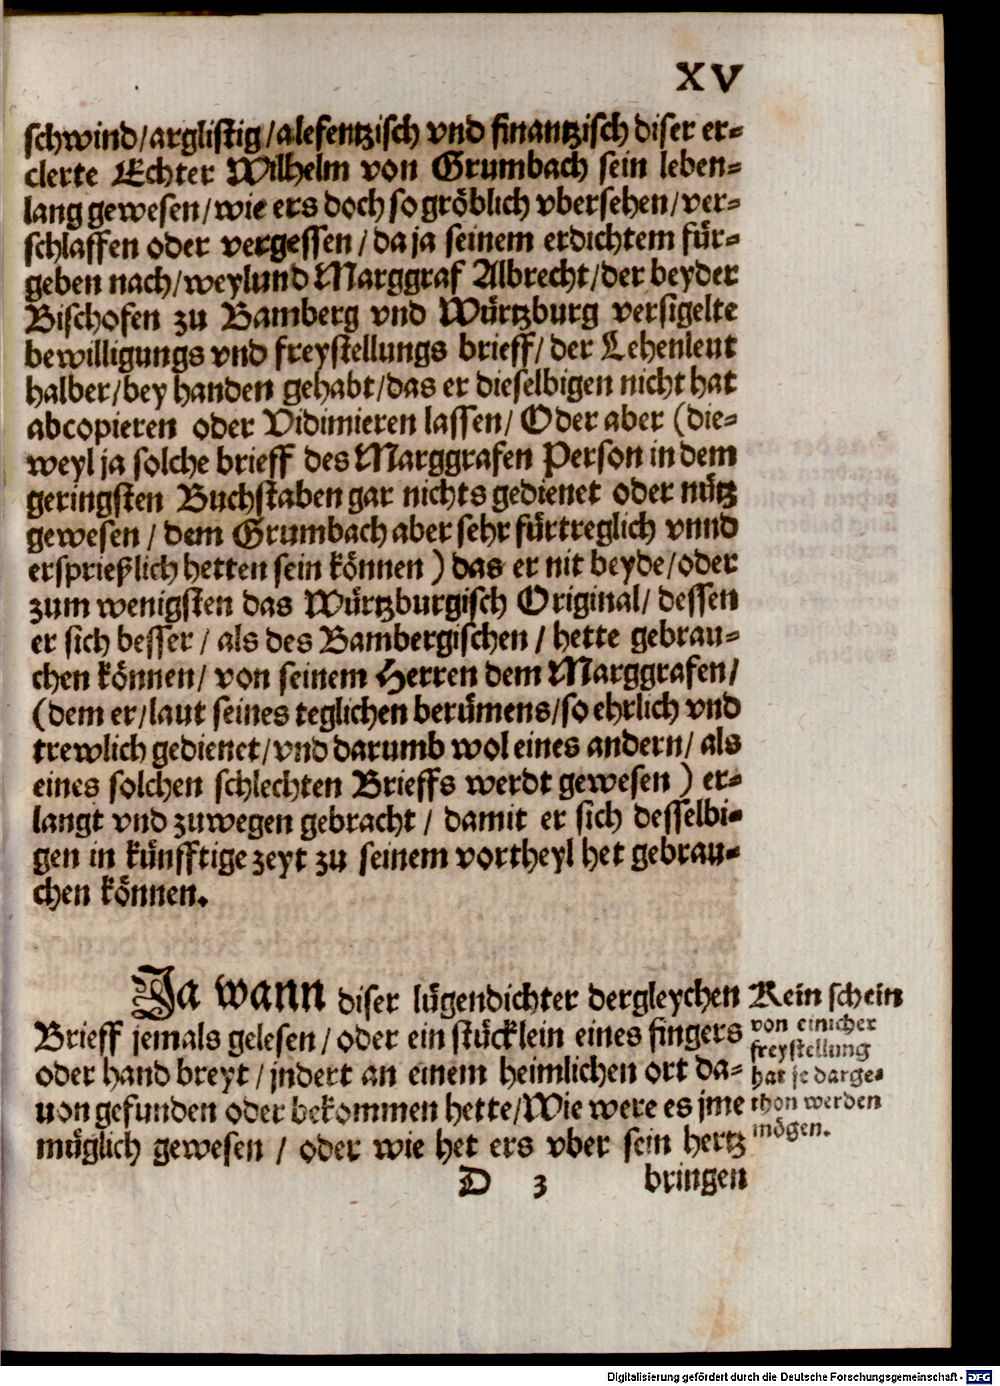 XV
schwind/arglistig/alefentzisch vnd finantzisch diser er-
clerte Echter Wilhelm von Grumbach sein leben-
lang gewesen/wie ers doch so gröblich vbersehen/ver-
schlaffen oder vergessen/da ja seinem erdichtem für-
geben nach/weylund Marggraf Albrecht/der beyder
Bischofen zu Bamberg vnd Würtzburg versigelte
bewilligungs vnd freystellungs brieff/der Lehenleut
halber/bey handen gehabt/das er dieselbigen nicht hat
abcopieren oder Vidimieren lassen/Oder aber (die-
weyl ja solche brieff des Marggrafen Person in dem
geringsten Buchstaben gar nichts gedienet oder nütz
gewesen/dem Grumbach aber sehr fürtreglich vnnd
ersprießlich hetten sein können) das er nit beyde/oder
zum wenigsten das Würtzburgisch Original/dessen
er sich besser/als des Bambergischen/hette gebrau-
chen können/von seinem Herren dem Marggrafen/
(dem er/laut seines teglichen berümens/so ehrlich vnd
trewlich gedienet/vnd darumb wol eines andern/als
eines solchen schlechten Brieffs werdt gewesen) er-
langt vnd zuwegen gebracht/damit er sich desselbi-
gen in künfftige zeyt zu seinem vortheyl het gebrau-
chen können.
Ja wann diser lügendichter dergleychen
Brieff jemals gelesen/oder ein stücklein eines fingers
oder hand breyt/jndert an einem heimlichen ort da-
uon gefunden oder bekommen hette/Wie were es jme
müglich gewesen/oder wie het ers vber sein hertz
Kein schein
von einicher
freystellung
hat je darge-
thon werden
mögen.
D 3 bringen
Digitalisierung gefördert durch die Deutsche Forschungsgemeinschaft - DFG